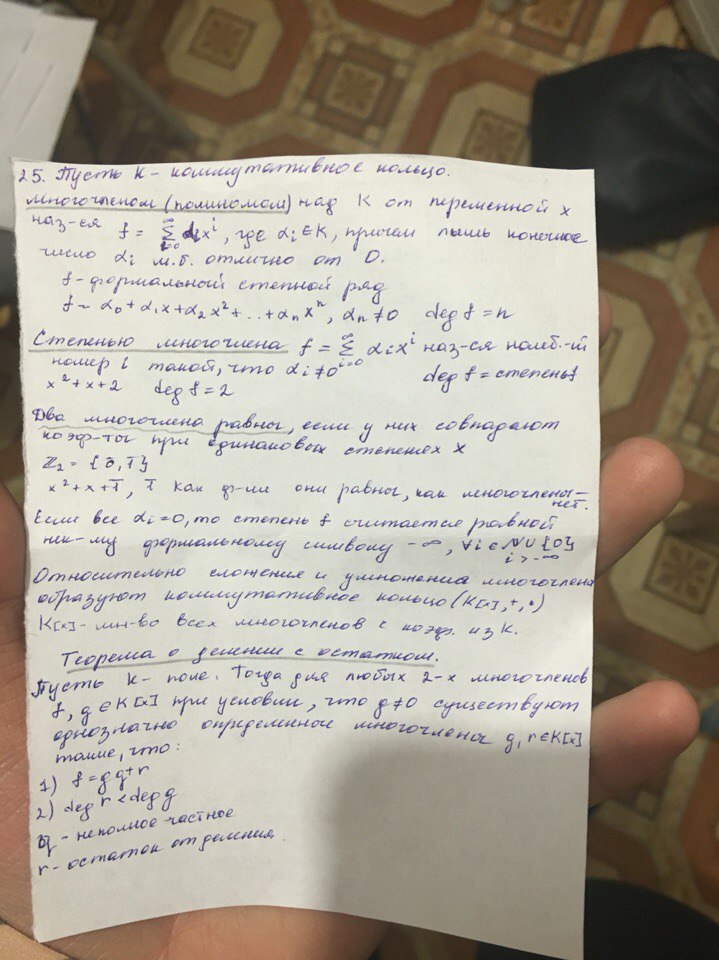 25. Пусть K - коммутативное кольцо.
Многочленом (полиномом) над K от переменной x
наз-ся f = ∑_{i=0}^{∞} αᵢxⁱ, где αᵢ ∈ K, причем лишь конечное
число αᵢ м.б. отлично от 0.
f - формальный степенной ряд
f = α₀ + α₁x + α₂x² + ... + αₙxⁿ, αₙ ≠ 0 deg f = n
Степенью многочлена f = ∑_{i=0}^{∞} αᵢxⁱ наз-ся наиб.-ий
номер i такой, что αᵢ ≠ 0 deg f = степень f
x² + x + 2 deg f = 2
Два многочлена равны, если у них совпадают
коэф-ты при одинаковых степенях x
ℤ₂ = {0̄, 1̄}
x² + x + 1̄, 1̄ как ф-ии они равны, как многочлены -
нет.
Если все αᵢ = 0, то степень f считается равной
нек-му формальному символу -∞, ∀i ∈ N ∪ {0}
i > -∞
Относительно сложения и умножения многочлена
образуют коммутативное кольцо (K[x], +, •)
K[x] - мн-во всех многочленов с коэф. из K.
Теорема о делении с остатком.
Пусть K - поле. Тогда для любых 2-х многочленов
f, g ∈ K[x] при условии, что g ≠ 0 существуют
однозначно определенные многочлены q, r ∈ K[x]
такие, что:
1) f = gq + r
2) deg r < deg g
q - неполное частное
r - остаток от деления.